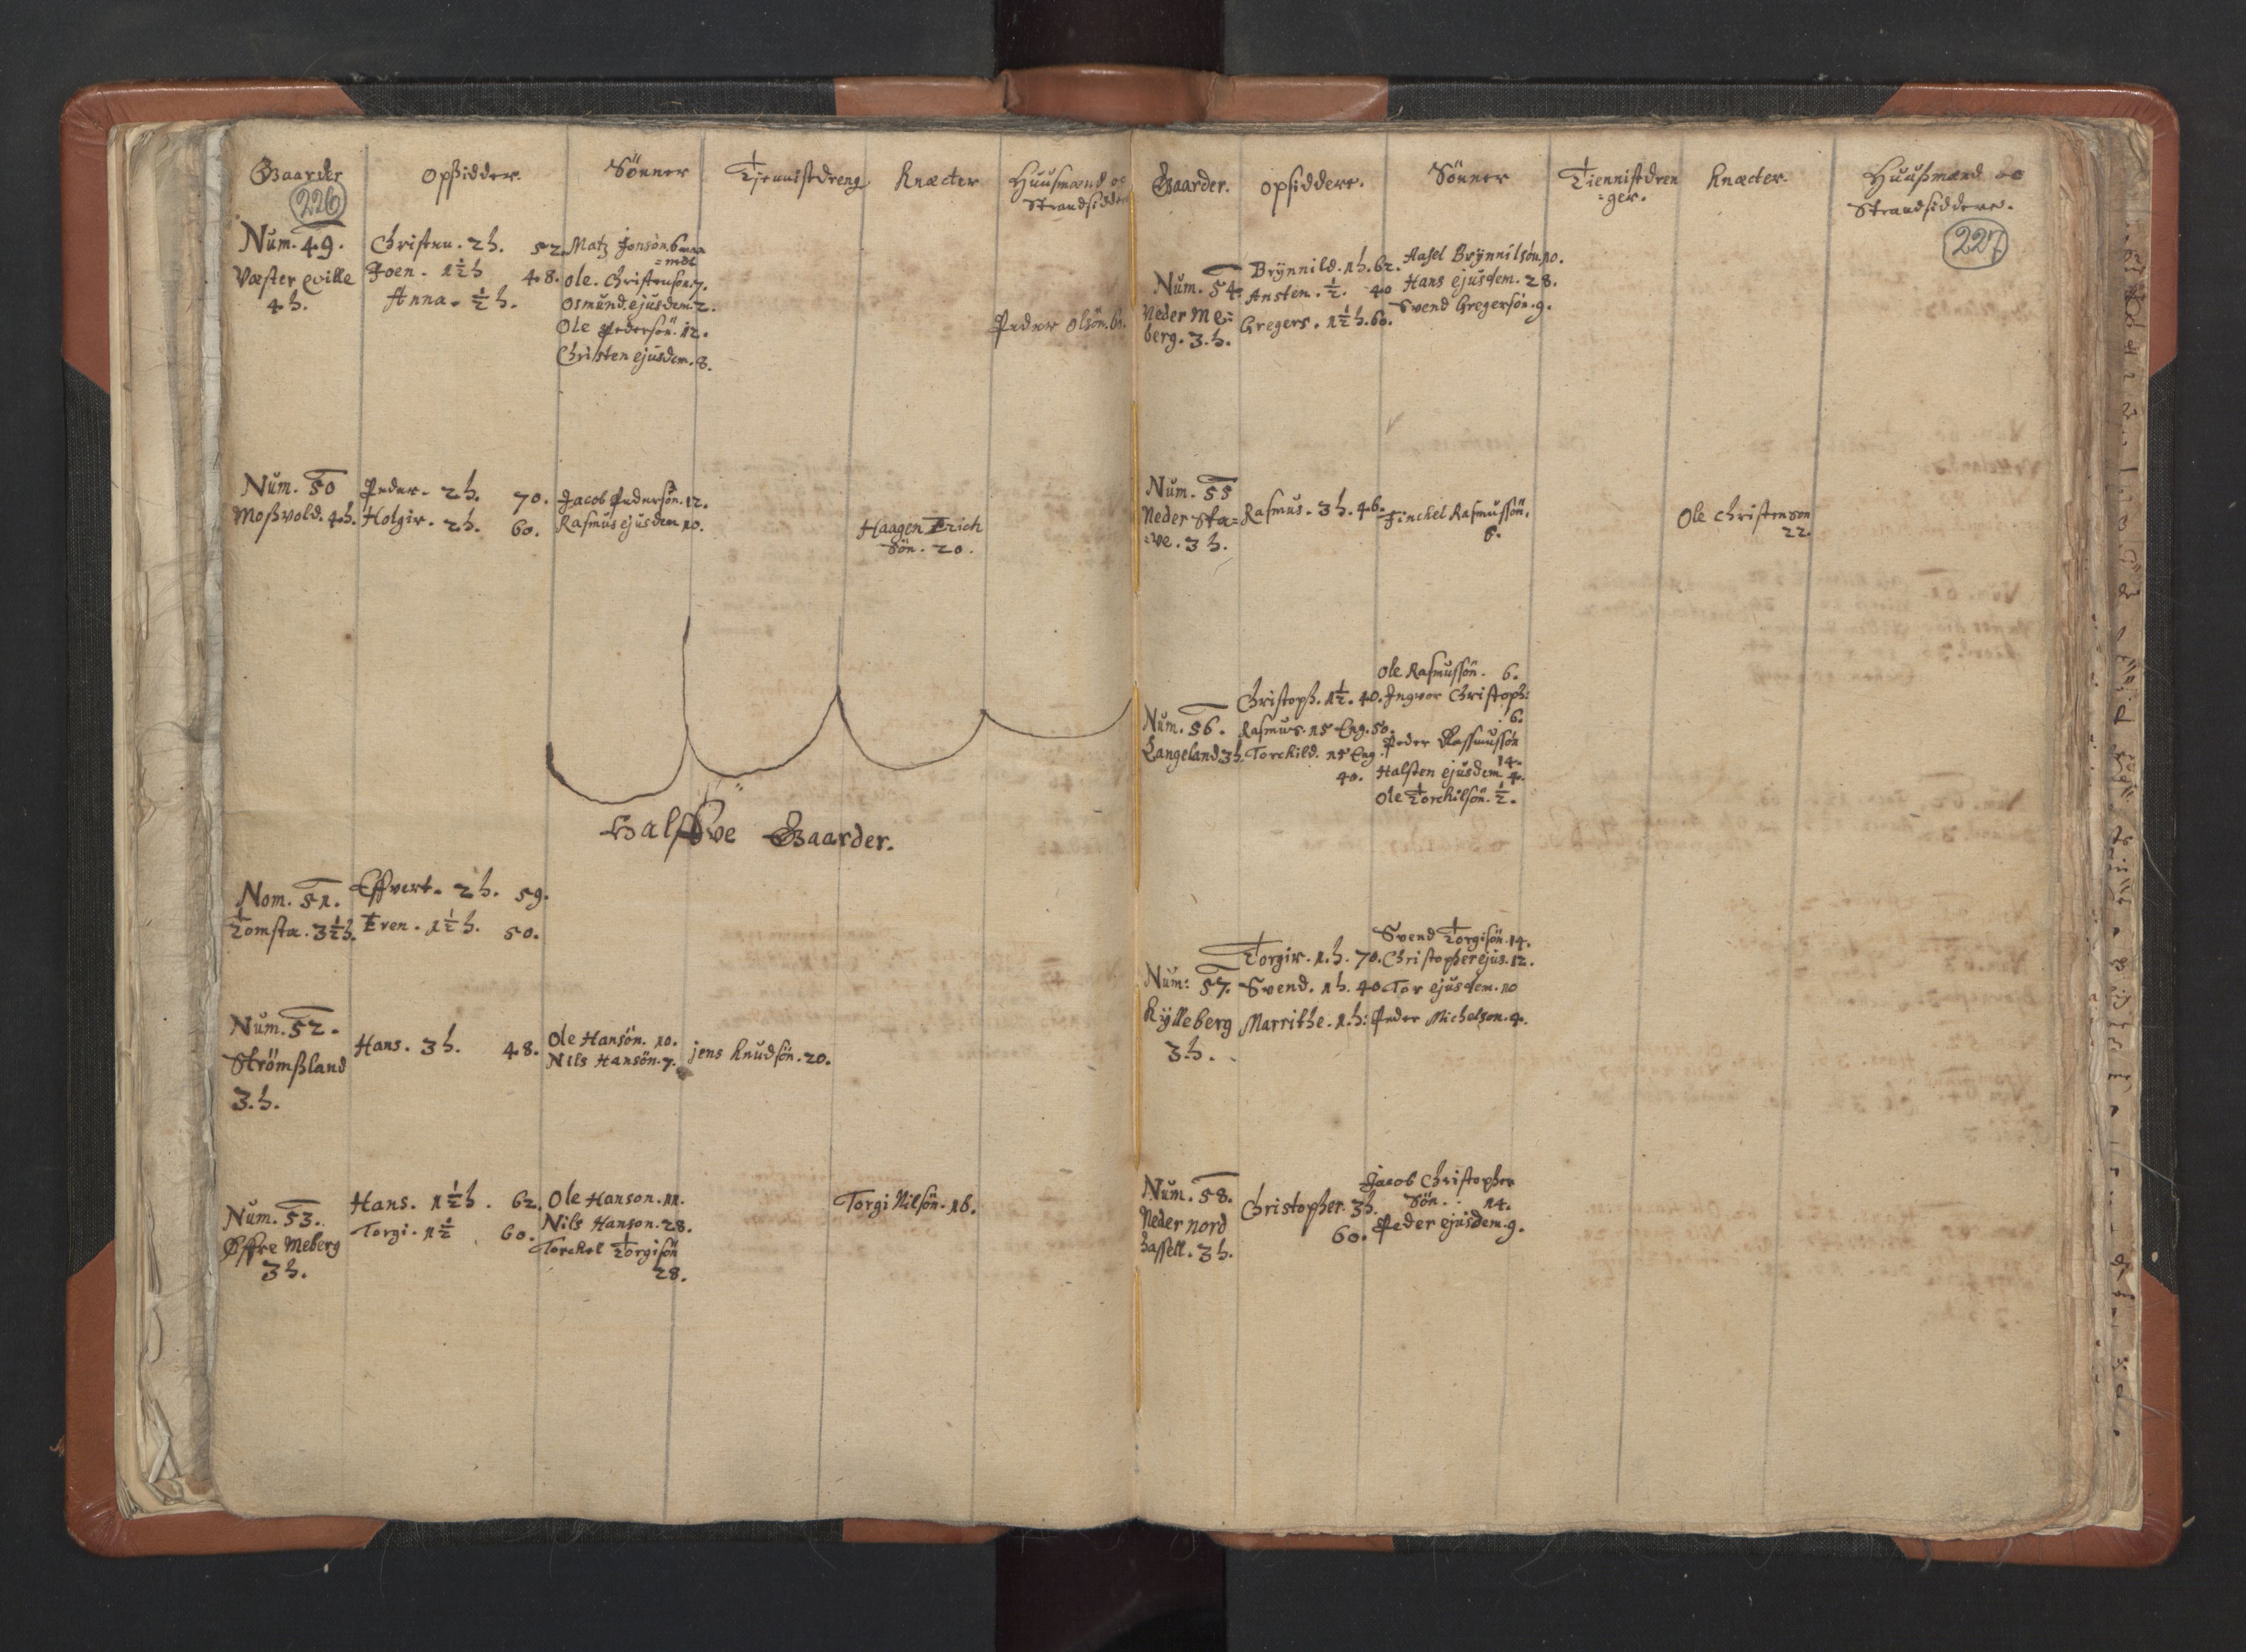 Gaarder
Opsidder.
Sönner
Tjennistdreng
Knæcter
Huusmænd oc
Strandsidder
226
Num. 49.
Væster qville
4 h.
Christen. 2 h. 52
Joen. 1½ h 48.
Anna. ½ h.
Matz Jonsön. 6 maa
=nedt
Ole. Christensön. 7.
Osmund. ejusdem. 2.
Ole Pedersön. 12.
Christen ejusdem. 8.
Peder Olsön. 60.
Num. 50
Mosßvold. 4 h.
Peder. 2 h. 70.
Holgir. 2 h. 60.
Jacob Pedersön. 12.
Rasmus ejusdem 10.
Haagen Erich
Sön. 20.
Halfve Gaarder.
Nom. 51.
Tomsta. 3½ h.
Effvert. 2 h. 59.
Even. 1½ h. 50.
Num. 52.
Strömßland
3. h.
Hans. 3 h. 48.
Ole Hansön. 10.
Nils Hansön. 7.
jens Knudsön. 20.
Num. 53.
Øffre Meberg
3 h.
Hans. 1½ h. 62.
Torgi. 1½ 60.
Ole Hanson. 11.
Nils Hanson. 28.
Torchel Torgisön
28.
Torgi Nilsön. 16.
Gaarder.
Opsiddere.
Sönner
Tiennistdren
=ger.
Knæcter.
Huußmænd oc
Strandsiddere.
227
Num. 54.
Neder Me=
berg. 3. h.
Brÿnnild. 1 h. 62.
Ansten. ½. 40
Gregers. 1½ h. 60.
Aasel Brÿnnilsön. 10.
Hans ejusdem. 28.
Svend Gregersön. 9.
Num. 55
Neder Sta=
=ve. 3 h.
Rasmus. 3 h. 46.
Finchel Rasmussön.
6.
Ole Christenson
22.
Num. 56.
Langeland. 3 h.
Christoph. 1½. 40.
Rasmus. 15 Eng. 50.
Torchild. 15 Eng.
40.
Ole Rasmussön. 6.
Ingvor Christoph:
6.
Peder Rassmussön
14.
Halsten ejusdem 4.
Ole Torchilsön. ½.
Num: 57.
Kÿlleberg
3 h.
Torgir. 1. h. 70.
Svend. 1 h. 40
Marrithe. 1. h:
Svend Torgisön. 14.
Christopher ejus. 12.
Tor ejusdem. 10
Peder Michelson. 4.
Num. 58.
Neder nord
hassell. 3 h.
Christopher. 3 h.
60.
Jacob Christopher
Sön. 14.
Peder ejusdem. 9.